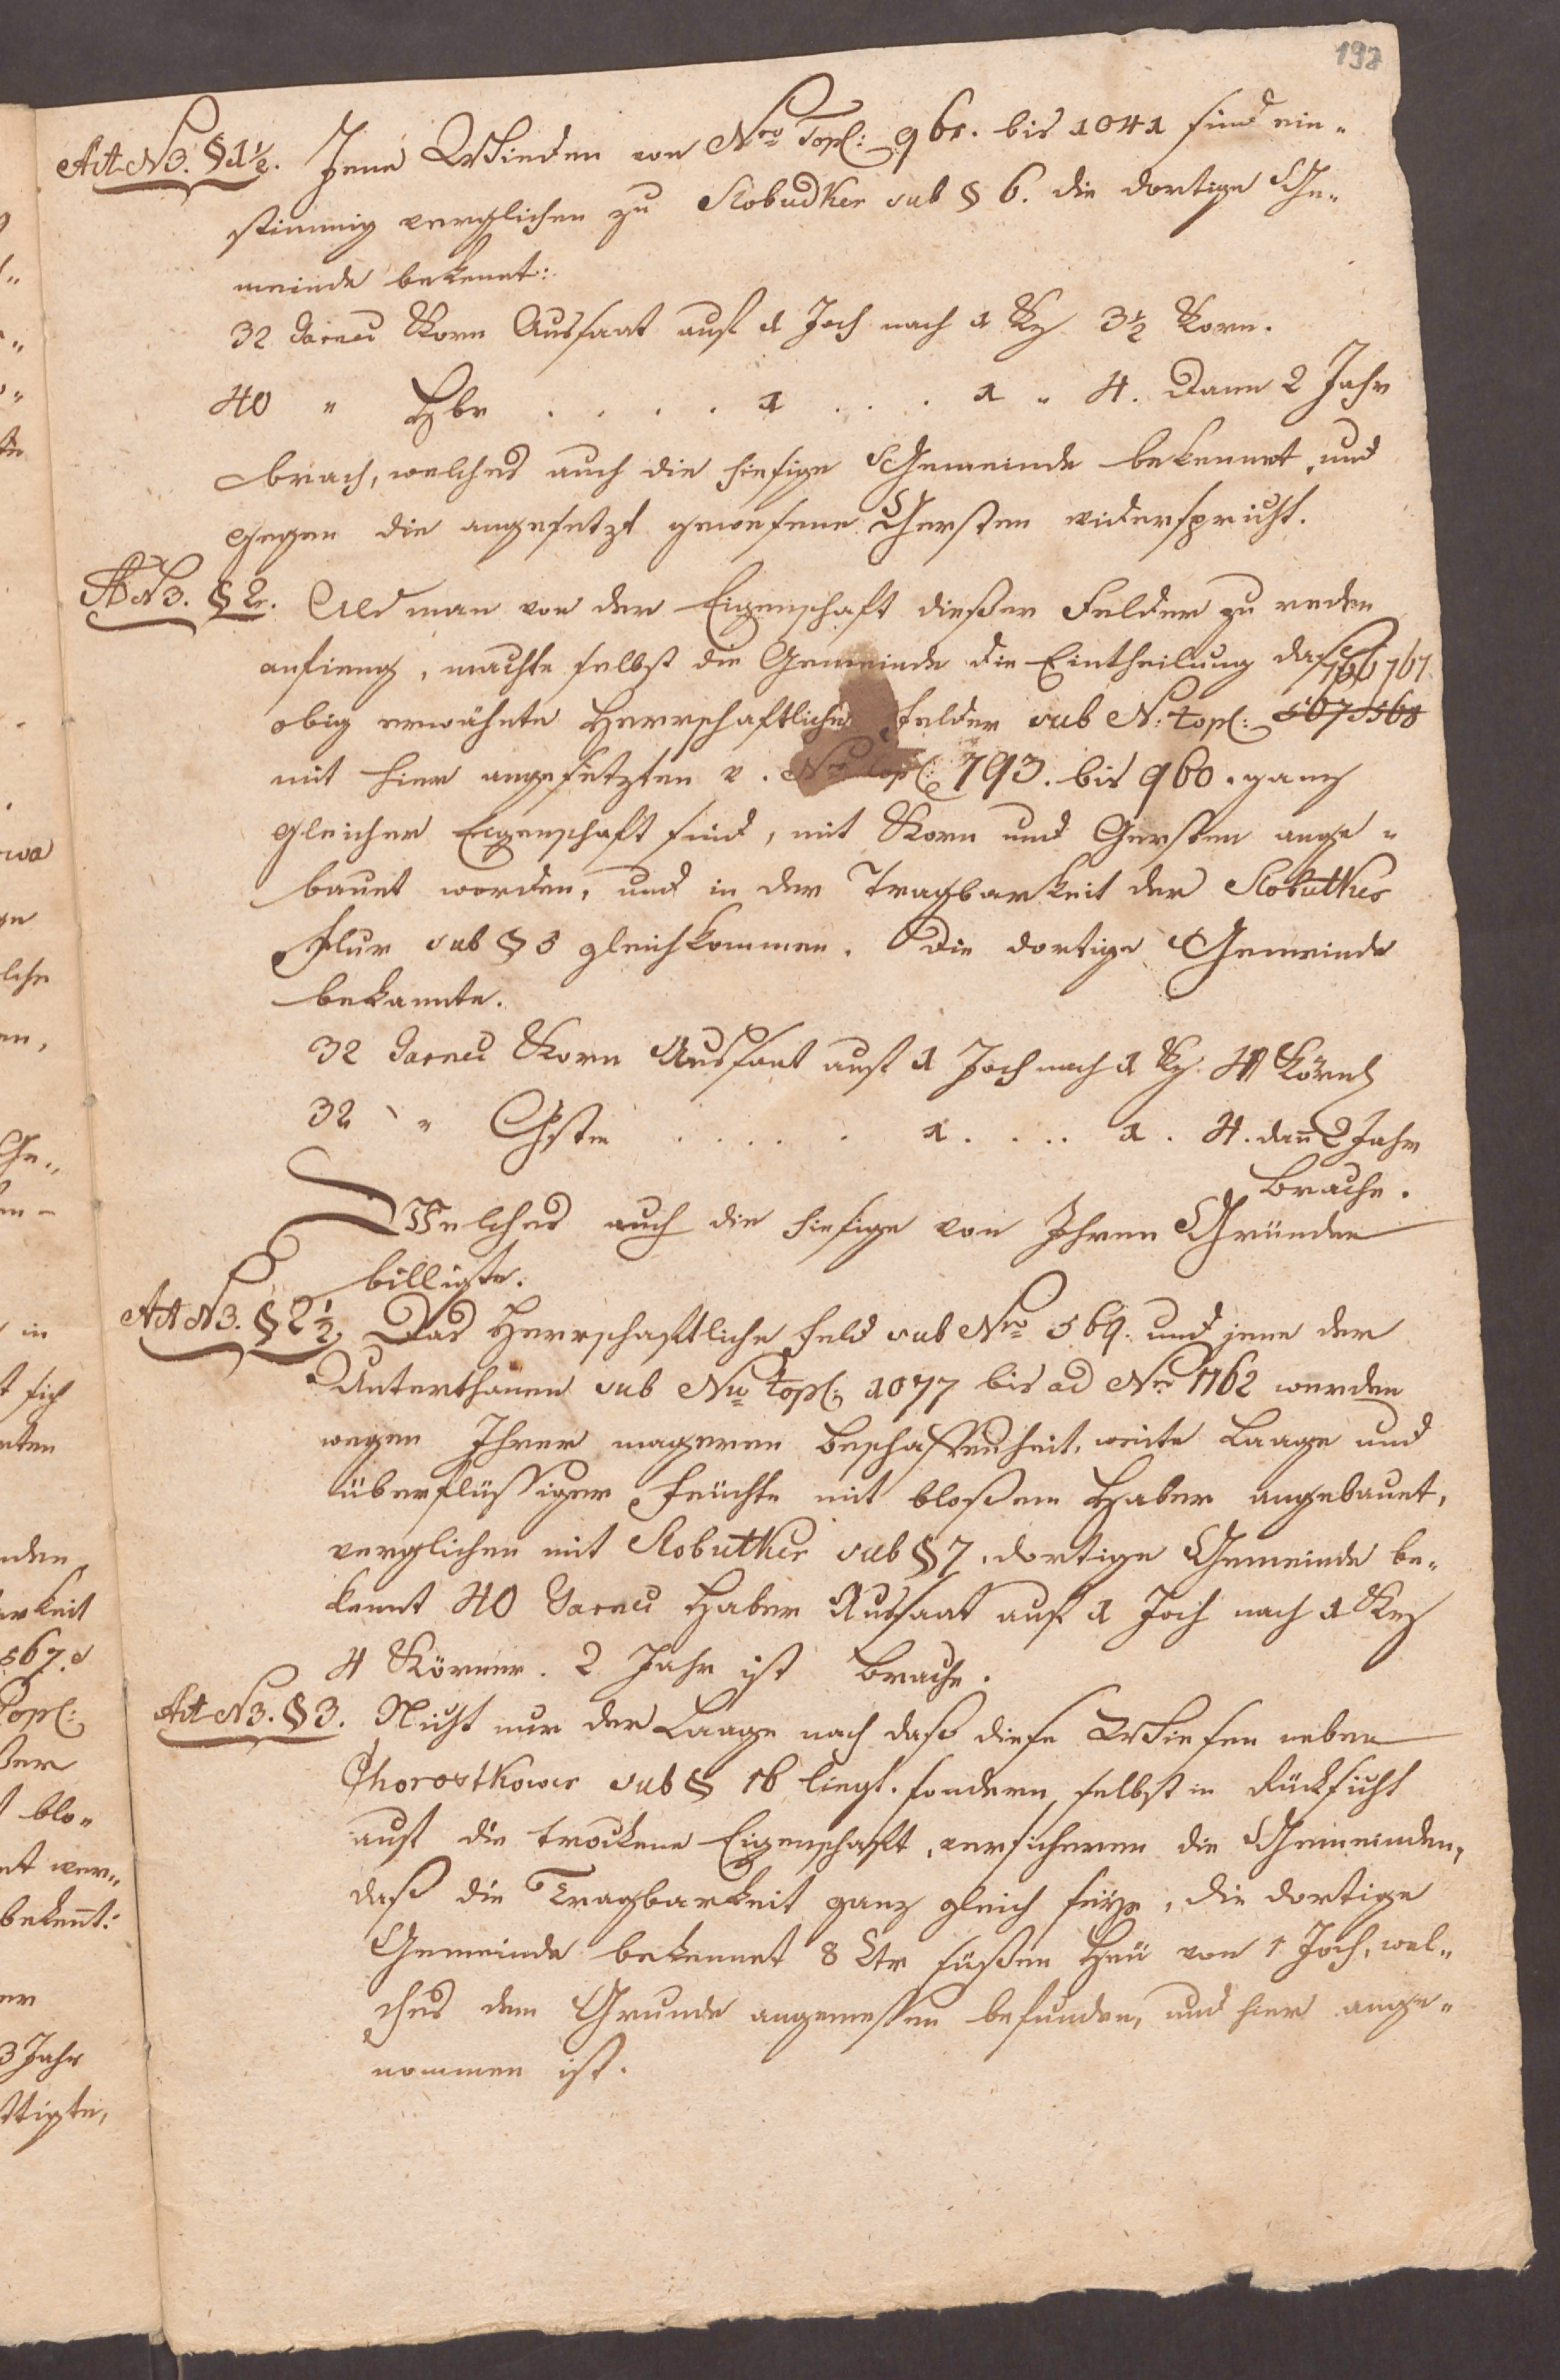 198
Act No 3. § 1½. Jene Wieden von Nro Topl: 961. bis 1041 sind ein„
stimmig verglichen zu Slobudker sub § 6. die dortige Ge„
meinde bekennt:
32 Garnetz Korn Aussaat auf 1 Joch nach 1 Kz 3½ Korn.
40 „ Hbr . . . . 1 . . . 1 „ 4. Dann 2 Jahr
brach, welches auch die hiesige Gemeinde bekennet, und
gegen die angesetzt gewesene Gersten widerspricht.
Ad No 3. § 2. Als man von der Eigenschaft dießer Felder zu reden
anfieng, machte selbst die Gemeinde die Eintheilung daß
766 767
obig erwähnte Herrschaftliche Felder sub N: topl: 567 568
mit hier angesetzten v. Nro topl: 793. bis 960. ganz
gleicher Eigenschaft sind, mit Korn und Gersten ange„
bauet worden, und in der Tragbarkeit der Slobutker
Flur sub § 5 gleichkommen. Die dortige Gemeinde
bekannte.
32 Garnetz Korn Aussaat auf 1 Joch nach 1 Kz. 4 Körner
32 „ Gste . . . . . 1 . . . . 1 . 4. dann 2 Jahr
Brache.
Welches auch die hiesige von Ihren Gründen
billigte.
Act No 3. § 2½. Das Herrschaftliche Feld sub Nro 569. und jene der
Unterthanen sub Nro topl: 1077 bis ad Nro 1162 werden
wegen Ihrer mageren Beschaffenheit, weite Laage und
überflüssiger Feüchte mit bloßem Haber angebauet,
verglichen mit Slobutker sub § 7. dortige Gemeinde be„
kennt 40 Garnetz Haber Aussaat auf 1 Joch nach 1 Kz
4 Körner. 2 Jahr ist Brache.
Act No 3. § 3. Nicht nur der Laage nach daß diese Wiesen neben
Chorostkower sub § 16 liegt. sondern selbst in Rücksicht
auf die trockene Eigenschaft, versicheren die Gemeinden,
daß die Tragbarkeit ganz gleich seÿe, die dortige
Gemeinde bekennet 8 Ctr süßen Heü von 1 Joch, wel„
ches dem Grunde angemessen befunden, und hier ange„
nommen ist.